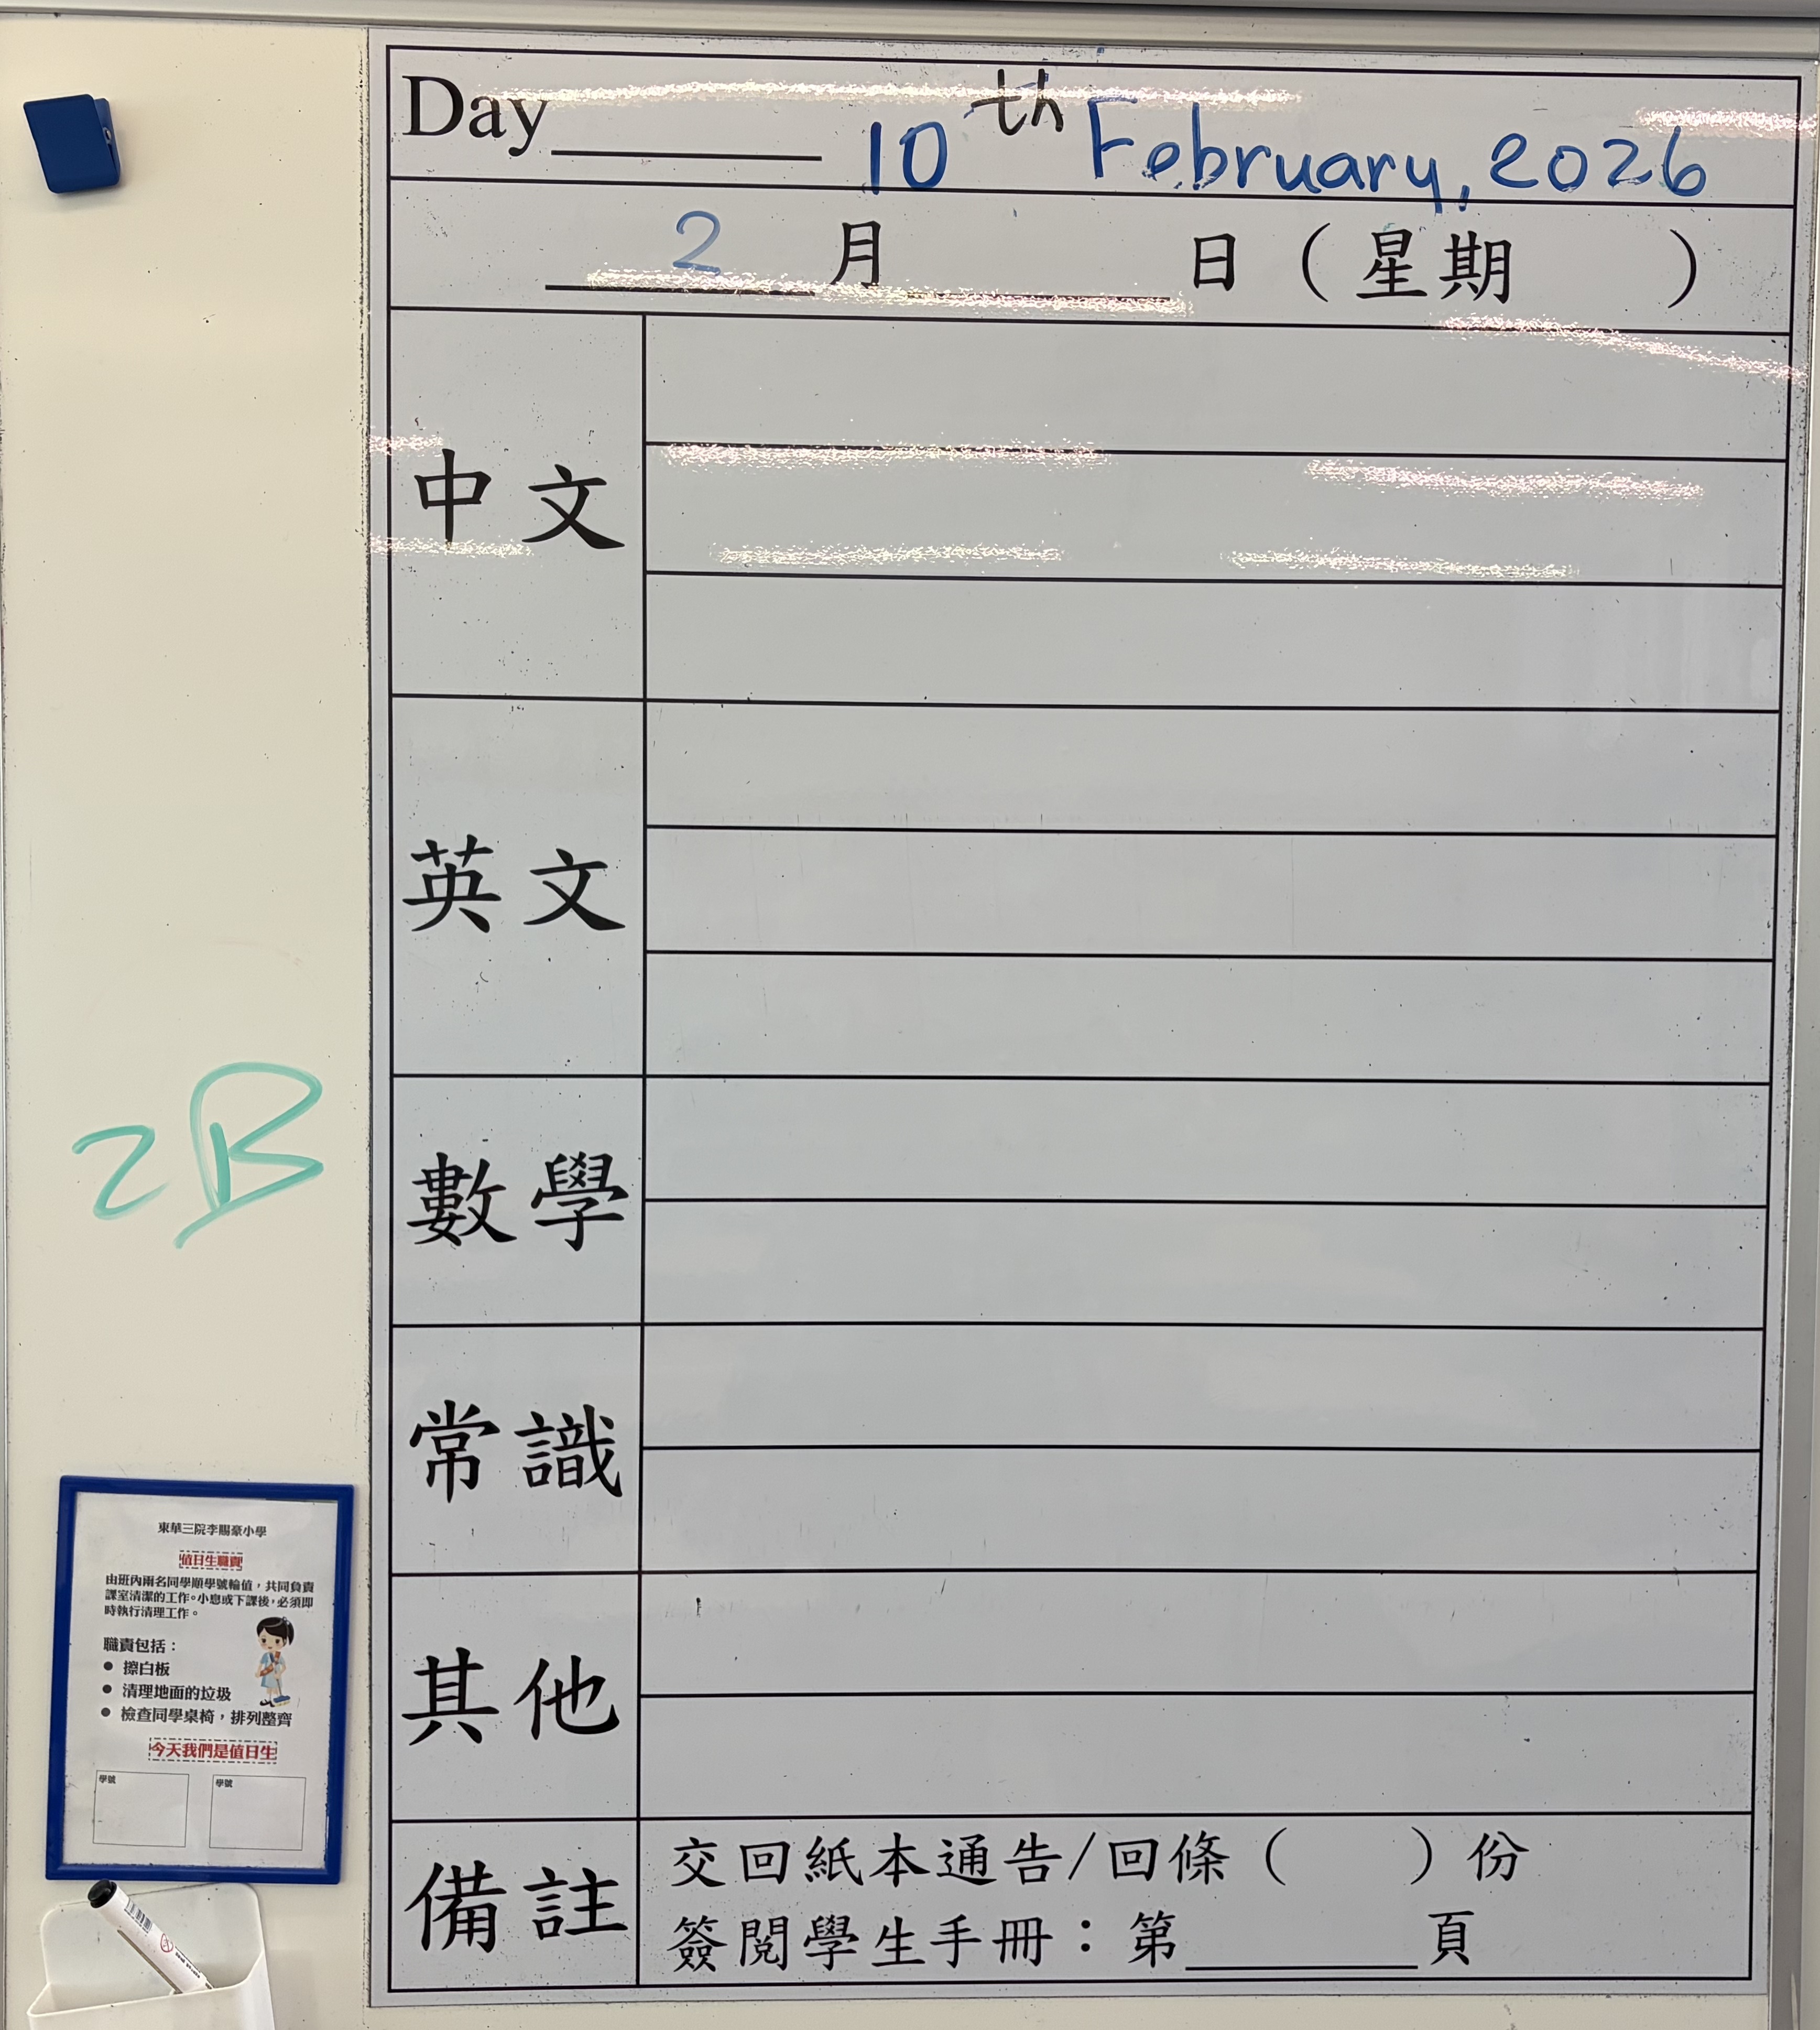 Day______ 10th February, 2026
2 月 ______ 日（星期　　）
中文
英文
數學
常識
其他
備註
交回紙本通告/回條（　　）份
簽閱學生手冊：第______頁
2B
東華三院李賜豪小學
值日生職責
由班內兩名同學順學號輪值，共同負責
課室清潔的工作。小息或下課後，必須即
時執行清理工作。
職責包括：
● 擦白板
● 清理地面的垃圾
● 檢查同學桌椅，排列整齊
今天我們是值日生
學號
學號